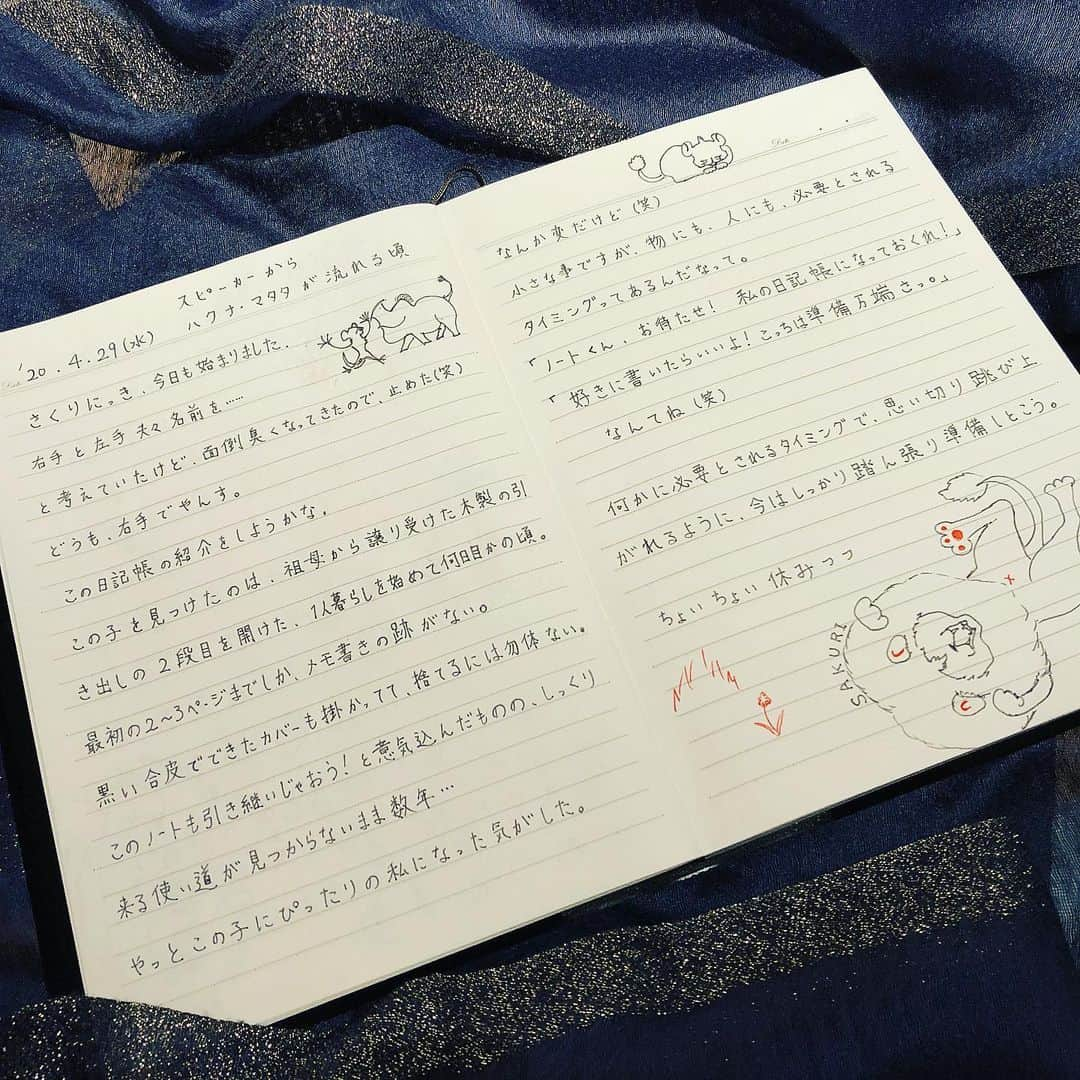 スピーカーから
ハクナ・マタタが流れる頃
'20.4.29(水)
さくりにっき、今日も始まりました。
右手と左手 夫々名前を……
と考えていたけど、面倒臭くなってきたので、止めた(笑)
どうも、右手でやんす。
この日記帳の紹介をしようかな。
この子を見つけたのは、祖母から譲り受けた木製の引
き出しの2段目を開けた、1人暮らしを始めて何日目かの頃。
最初の2〜3ページまでしか、メモ書きの跡がない。
黒い合皮でできたカバーも掛かってて、捨てるには勿体ない。
このノートも引き継いじゃおう!と意気込んだものの、しっくり
来る使い道が見つからないまま数年…
やっとこの子にぴったりの私になった気がした。
なんか変だけど(笑)
小さな事ですが、物にも、人にも、必要とされる
タイミングってあるんだなって。
「ノートくん、お待たせ! 私の日記帳になっておくれ!」
「好きに書いたらいいよ!こっちは準備万端さっ。」
なんてね(笑)
何かに必要とされるタイミングで、思い切り跳び上
がれるように、今はしっかり踏ん張り準備しとこう。
ちょいちょい休みつつ
SAKURI